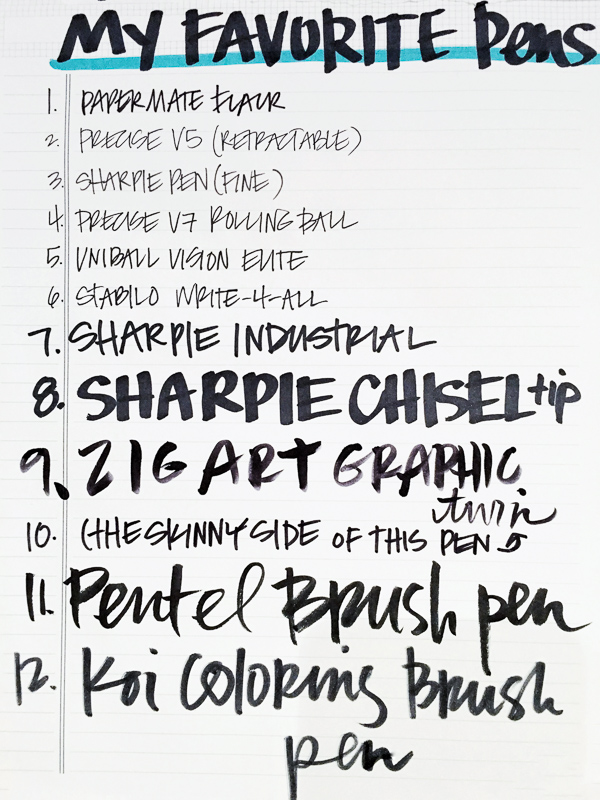 MY FAVORITE Pens
1. PAPERMATE FLAIR
2. PRECISE V5 (RETRACTABLE)
3. SHARPIE PEN (FINE)
4. PRECISE V7 ROLLING BALL
5. UNIBALL VISION ELITE
6. STABILO WRITE-4-ALL
7. SHARPIE INDUSTRIAL
8. SHARPIE CHISEL tip
9. ZIG ART GRAPHIC
twin
10. (THE SKINNY SIDE OF THIS PEN
11. Pentel Brush pen
12. Koi Coloring Brush
pen